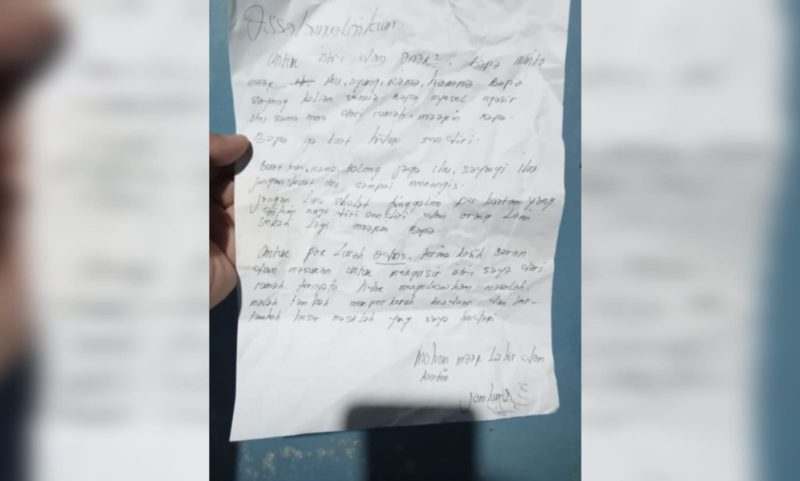 Assalamualaikum
Untuk istri dan anak2. Bapa minta
maaf Ibu, agung, rama, hamma Bapa
sayang kalian semua. Bapa nyesel ngusir
ibu sama mas dari rumah. maapin bapa.
Bapa ga kuat hidup sendiri.
Buat mas, rama, tolong jaga ibu, sayangi ibu
jangan buat ibu sampai menangis.
Jangan lupa sholat tinggalin per buatan yang
rugi diri sendiri dan orang lain
sekali lagi maapin bapa.
Untuk pak Lurah terima kasih saran
dan masukan untuk mengusir istri saya dari
rumah. ternyata tidak menyelesaikan masalah.
malah tambah memperburuk keadaan dan ber-
tambah besar masalah yang saya hadapi
Mohon maaf Lahir dan
batin